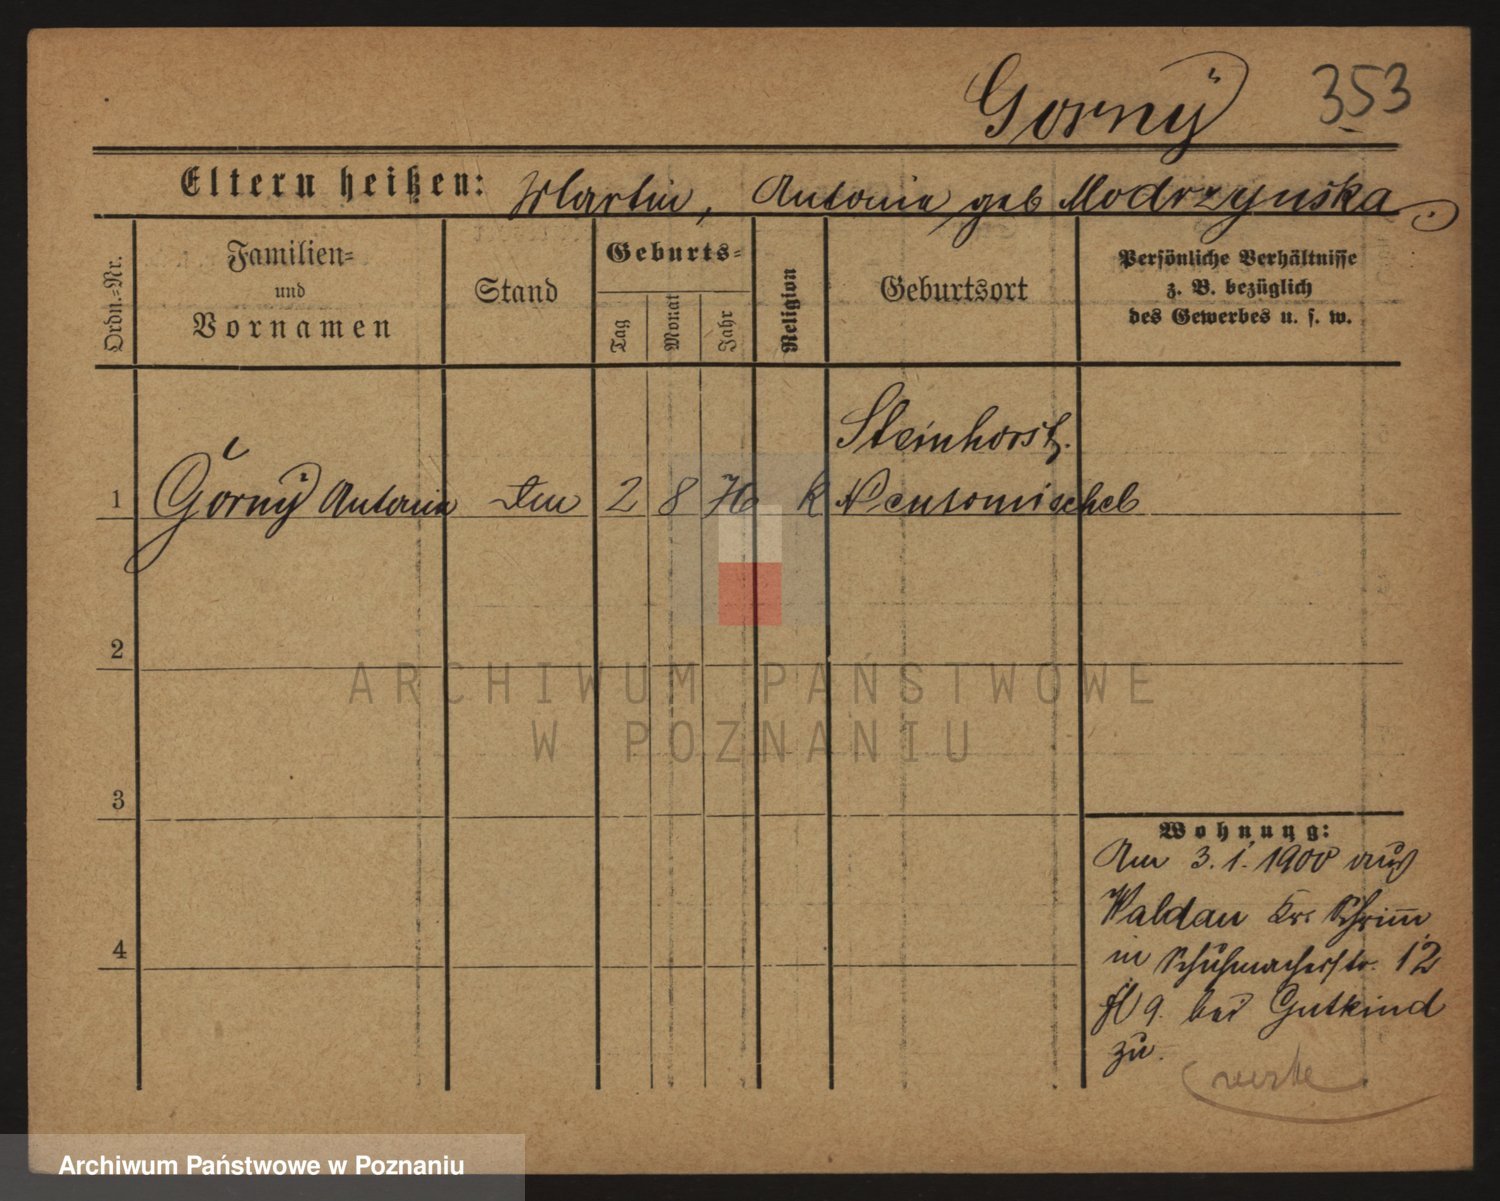 Gorny 353
Eltern heißen: Martin, Antonie geb Modrzynska.
Ordn.-Nr.
Familien- und Vornamen
Stand
Geburts-
Tag
Monat
Jahr
Religion
Geburtsort
Persönliche Verhältnisse
z. B. bezüglich
des Gewerbes u. s. w.
Steinhorst
1 Gorny Antonie 2 8 K Neutomischel
2
3
4
Wohnung:
Am 3.1.1900 aus
Waldau Krs Schrimm
in Schuhmacherstr. 12
9. bei Gutkind
zu
ARCHIWUM PAŃSTWOWE
W POZNANIU
Archiwum Państwowe w Poznaniu